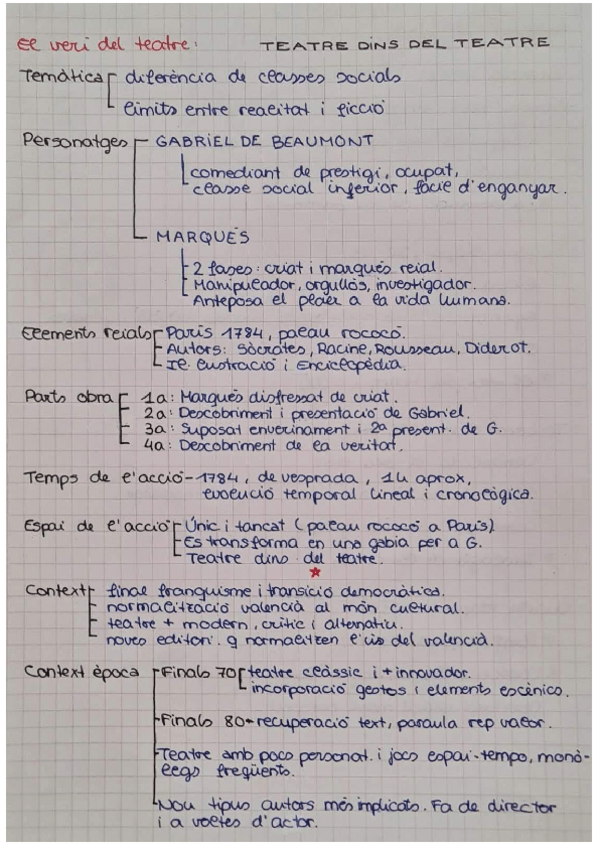 El verí del teatre: TEATRE DINS DEL TEATRE
Temàtica diferència de classes socials
límits entre realitat i ficció
Personatges GABRIEL DE BEAUMONT
comediant de prestigi, ocupat,
classe social inferior, fàcil d'enganyar.
MARQUÉS
2 fases: criat i marqués reial.
Manipulador, orgullós, investigador.
Anteposa el plaer a la vida humana.
Elements reials París 1784, palau rococó.
Autors: Sòcrates, Racine, Rousseau, Diderot.
Il·lustració i Enciclopèdia.
Parts obra 1a: Marqués disfressat de criat.
2a: Descobriment i presentació de Gabriel.
3a: Suposat enverinament i 2a present. de G.
4a: Descobriment de la veritat.
Temps de l'acció - 1784, de vesprada, 1h aprox,
evolució temporal lineal i cronològica.
Espai de l'acció Únic i tancat (palau rococó a París)
Es transforma en una gàbia per a G.
Teatre dins del teatre.
Context final franquisme i transició democràtica.
normalització valencià al món cultural.
teatre + modern, crític i alternatiu.
noves editori. q normalitzen l'ús del valencià.
Context època Finals 70 teatre clàssic i + innovador.
incorporació gestos i elements escènics.
Finals 80 recuperació text, paraula rep valor.
Teatre amb pocs personat. i jocs espai-temps, monò-
legs freqüents.
Nou tipus autors més implicats. Fa de director
i a voltes d'actor.